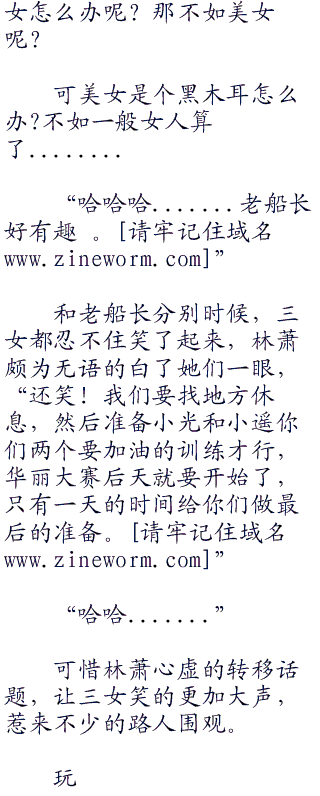 女怎么办呢？那不如美女
呢？
可美女是个黑木耳怎么
办?不如一般女人算
了........
“哈哈哈.......老船长
好有趣 。[请牢记住域名
www.zineworm.com]”
和老船长分别时候，三
女都忍不住笑了起来，林萧
颇为无语的白了她们一眼，
“还笑！我们要找地方休
息，然后准备小光和小遥你
们两个要加油的训练才行，
华丽大赛后天就要开始了，
只有一天的时间给你们做最
后的准备。[请牢记住域名
www.zineworm.com]”
“哈哈.......”
可惜林萧心虚的转移话
题，让三女笑的更加大声，
惹来不少的路人围观。
玩